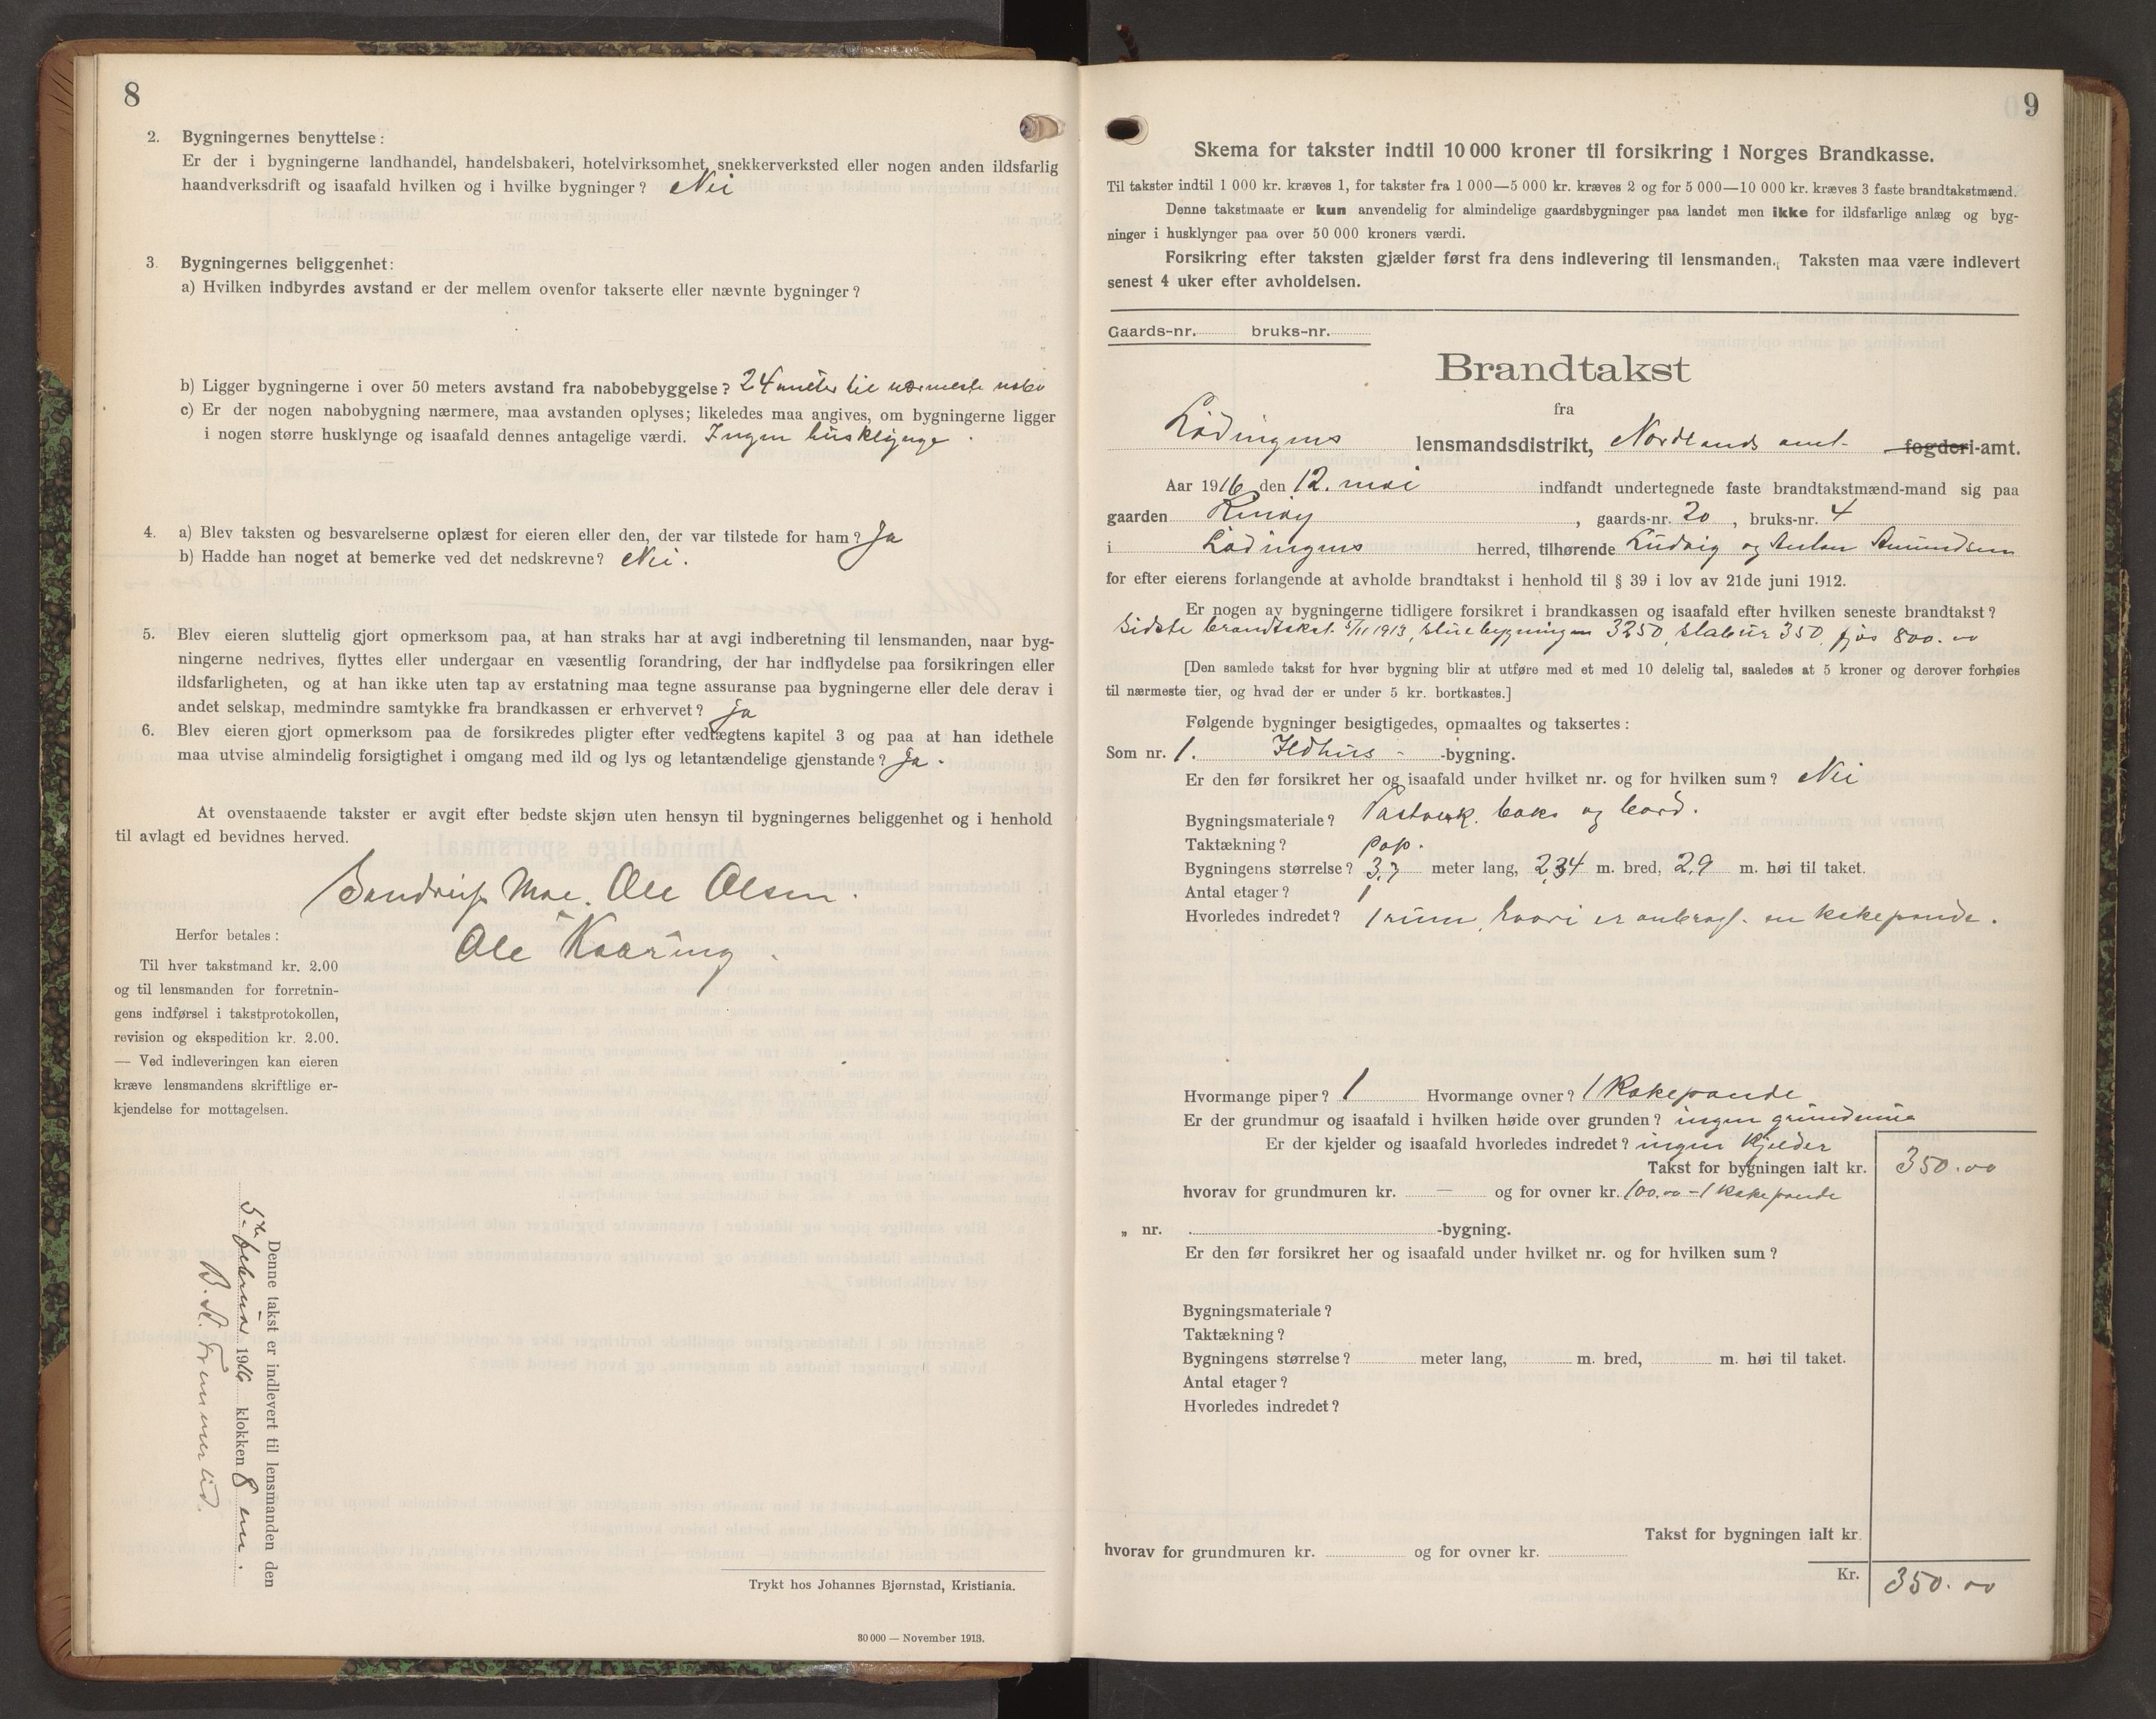 8
2. Bygningernes benyttelse:
Er der i bygningerne landhandel, handelsbakeri, hotelvirksomhet, snekkerverksted eller nogen anden ildsfarlig
haandverksdrift og isaafald hvilken og i hvilke bygninger? Nei
3. Bygningernes beliggenhet:
a) Hvilken indbyrdes avstand er der mellem ovenfor takserte eller nævnte bygninger?
b) Ligger bygningerne i over 50 meters avstand fra nabobebyggelse? 24 meter til nærmeste nabo
c) Er der nogen nabobygning nærmere, maa avstanden oplyses; likeledes maa angives, om bygningerne ligger
i nogen større husklynge og isaafald dennes antagelige værdi. Ingen husklynge.
4. a) Blev taksten og besvarelserne oplæst for eieren eller den, der var tilstede for ham? Ja
b) Hadde han noget at bemerke ved det nedskrevne? Nei.
5. Blev eieren sluttelig gjort opmerksom paa, at han straks har at avgi indberetning til lensmanden, naar byg-
ningerne nedrives, flyttes eller undergaar en væsentlig forandring, der har indflydelse paa forsikringen eller
ildsfarligheten, og at han ikke uten tap av erstatning maa tegne assuranse paa bygningerne eller dele derav i
andet selskap, medmindre samtykke fra brandkassen er erhvervet? ja
6. Blev eieren gjort opmerksom paa de forsikredes pligter efter vedtægtens kapitel 3 og paa at han idethele
maa utvise almindelig forsigtighet i omgang med ild og lys og letantændelige gjenstande? Ja.
At ovenstaaende takster er avgit efter bedste skjøn uten hensyn til bygningernes beliggenhet og i henhold
til avlagt ed bevidnes herved.
Moe. Ole Olsen.
Ole Kaaring.
Herfor betales:
Til hver takstmand kr. 2.00
og til lensmanden for forretnin-
gens indførsel i takstprotokollen,
revision og ekspedition kr. 2.00.
— Ved indleveringen kan eieren
kræve lensmandens skriftlige er-
kjendelse for mottagelsen.
Denne takst er indlevert til lensmanden den
5te februar 1916 klokken 8 em.
Trykt hos Johannes Bjørnstad, Kristiania.
30 000 — November 1913.
9
Skema for takster indtil 10 000 kroner til forsikring i Norges Brandkasse.
Til takster indtil 1 000 kr. kræves 1, for takster fra 1 000—5 000 kr. kræves 2 og for 5 000—10 000 kr. kræves 3 faste brandtakstmænd.
Denne takstmaate er kun anvendelig for almindelige gaardsbygninger paa landet men ikke for ildsfarlige anlæg og byg-
ninger i husklynger paa over 50 000 kroners værdi.
Forsikring efter taksten gjælder først fra dens indlevering til lensmanden. Taksten maa være indlevert
senest 4 uker efter avholdelsen.
Gaards-nr. bruks-nr.
Brandtakst
fra
Lødingens lensmandsdistrikt, Nordlands amt fogderi-amt.
Aar 1916 den 12. mai indfandt undertegnede faste brandtakstmænd-mand sig paa
gaarden Rinøy, gaards-nr. 20, bruks-nr. 4
i Lødingens herred, tilhørende Ludvig og Anton Amundsen
for efter eierens forlangende at avholde brandtakst i henhold til § 39 i lov av 21de juni 1912.
Er nogen av bygningerne tidligere forsikret i brandkassen og isaafald efter hvilken seneste brandtakst?
Sidste brandtakst 5/11 1913, stuebygningen 3250, stabur 350, fjøs 800.00
[Den samlede takst for hver bygning blir at utføre med et med 10 delelig tal, saaledes at 5 kroner og derover forhøies
til nærmeste tier, og hvad der er under 5 kr. bortkastes.]
Følgende bygninger besigtigedes, opmaaltes og taksertes:
Som nr. 1. Ildhus -bygning.
Er den før forsikret her og isaafald under hvilket nr. og for hvilken sum? Nei
Bygningsmateriale? og bord.
Taktækning? pap.
Bygningens størrelse? 3,7 meter lang, 2,34 m. bred, 2,9 m. høi til taket.
Antal etager? 1
Hvorledes indredet? 1 rum, hvori er anbragt en kokepande.
Hvormange piper? 1 Hvormange ovner? 1 Kokepande
Er der grundmur og isaafald i hvilken høide over grunden? ingen grundmur
Er der kjelder og isaafald hvorledes indredet? ingen Kjelder
Takst for bygningen ialt kr. 350.00
hvorav for grundmuren kr. — og for ovner kr. 100.00 - 1 Kokepande
„ nr. -bygning.
Er den før forsikret her og isaafald under hvilket nr. og for hvilken sum?
Bygningsmateriale?
Taktækning?
Bygningens størrelse? meter lang, m. bred, m. høi til taket.
Antal etager?
Hvorledes indredet?
Takst for bygningen ialt kr.
hvorav for grundmuren kr. og for ovner kr.
Kr. 350.00